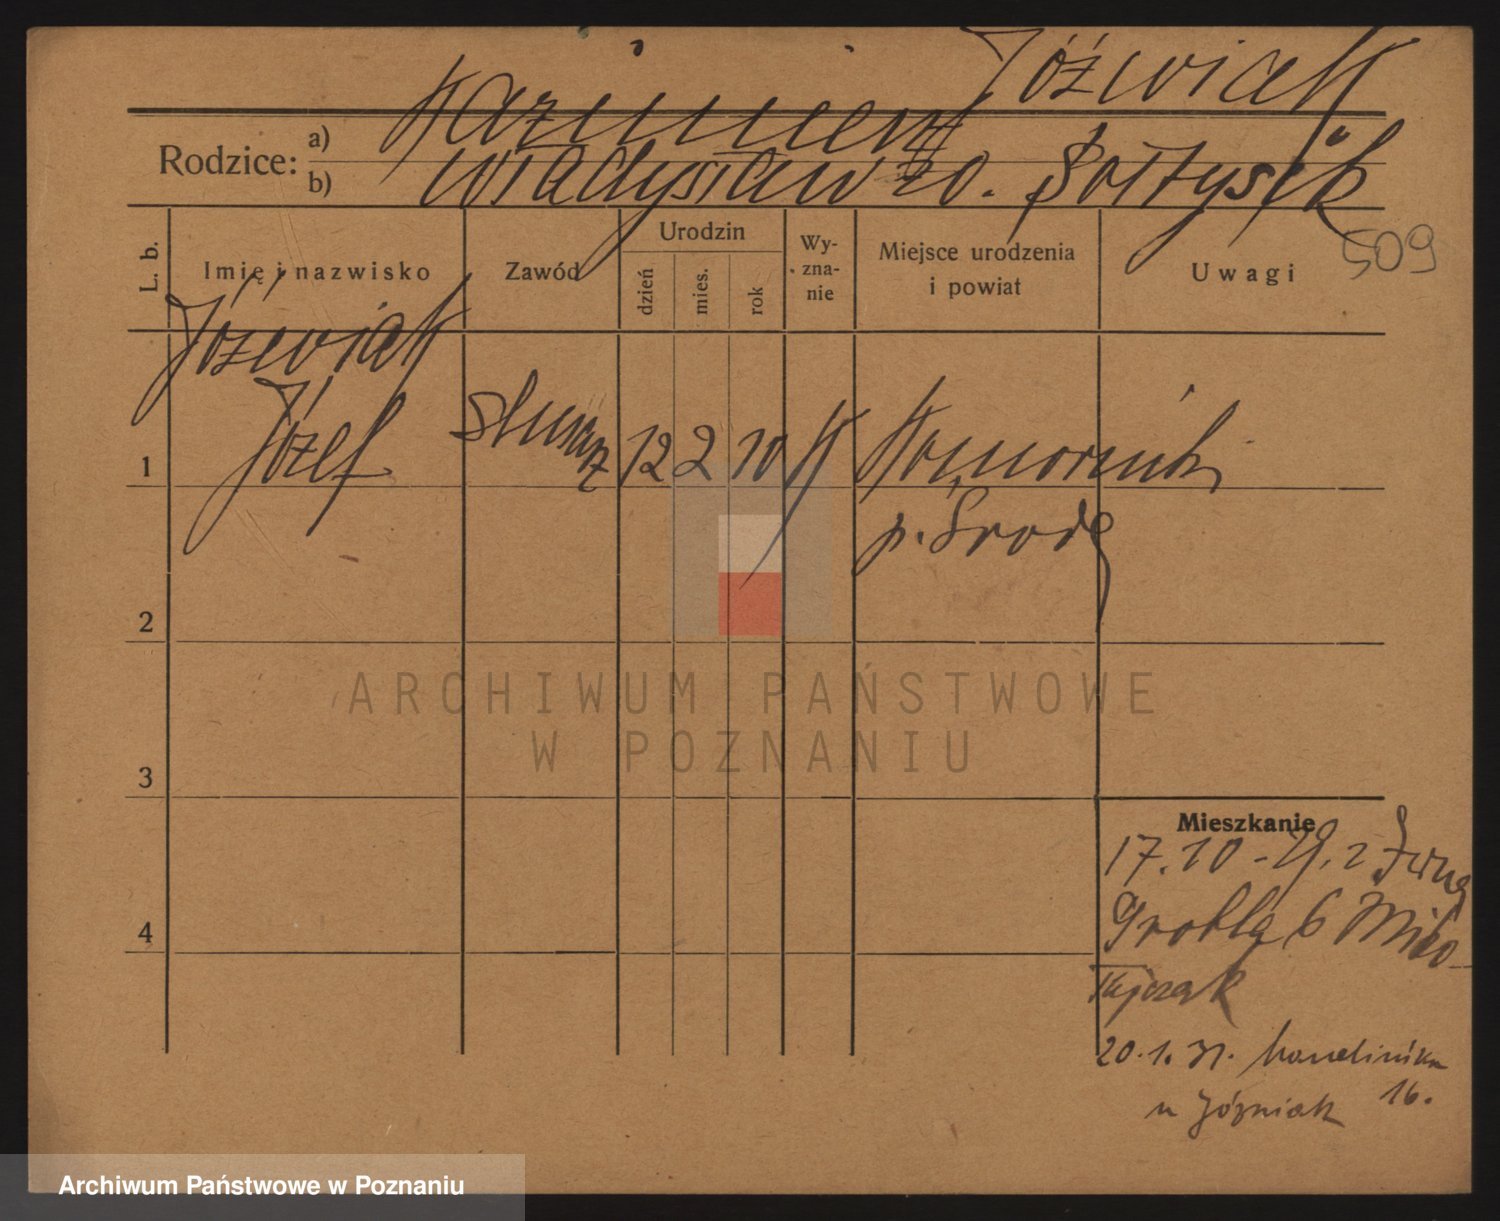 Jóźwiak
Rodzice:
a) Kazimierz
b) Władysława zd. Sołtysik
L. b.
Imię i nazwisko
Zawód
Urodzin
dzień
mies.
rok
Wy-
zna-
nie
Miejsce urodzenia
i powiat
Uwagi
509
Jóźwiak
1 Józef ślusarz 12 2 10 K Komorniki
p. Środa
2
3
4
Mieszkanie
17.10-29. 2
Grobla 6 Miko
łajczak
20.1.31.
16.
u Jóźwiak
ARCHIWUM PAŃSTWOWE
W POZNANIU
Archiwum Państwowe w Poznaniu